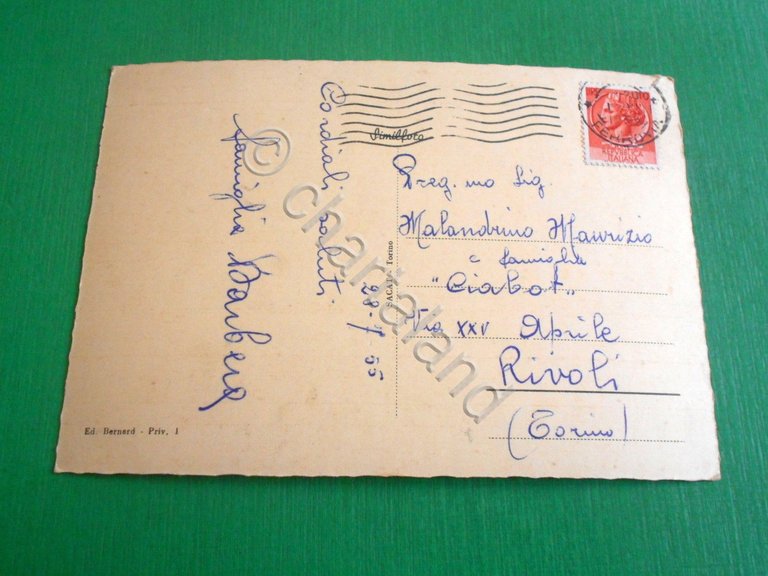 Cordiali saluti
28-7 55
famiglia Barbero
Simillfoto
Preg. mo Sig.
Malandrino Maurizio
e famiglia
"Ciabot"
Via XXV Aprile
Rivoli
(Torino)
SACAT - Torino
Ed. Bernard - Priv. 1
REPUBBLICA
ITALIANA
© chartaland